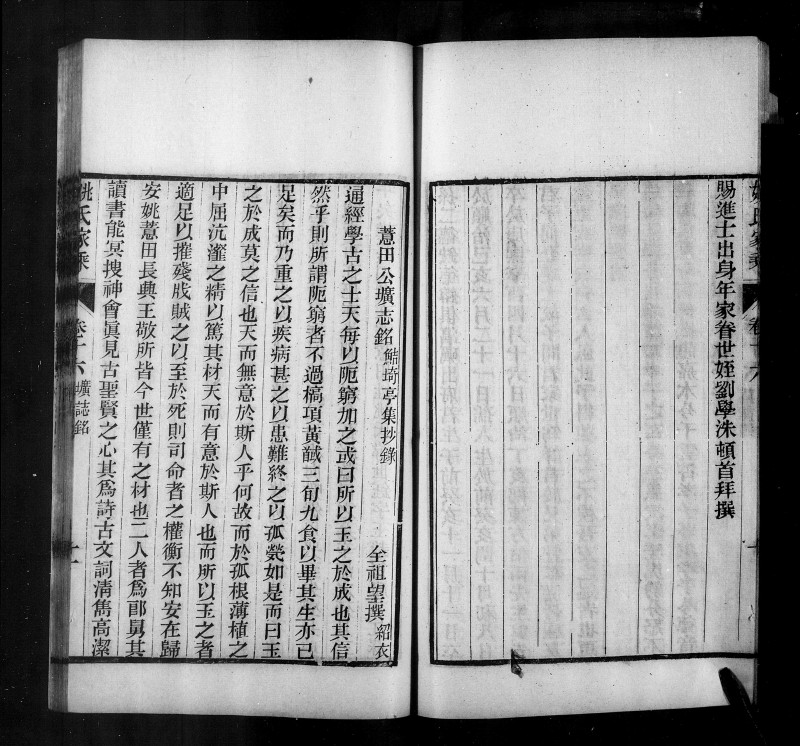 姚氏家乘
卷十六
賜進士出身年家眷世姪劉學洙頓首拜撰
薏田公壙志銘 鮚埼亭集抄錄
全祖望撰 紹衣
通經學古之士天每以阨窮加之或曰所以玉之於成也其信
然乎則所謂阨窮者不過槁項黃馘三旬九食以畢其生亦已
足矣而乃重之以疾病甚之以患難終之以孤煢如是而曰玉
之於成莫之信也天而無意於斯人乎何故而於孤根薄植之
中屈沆瀣之精以篤其材天而有意於斯人也而所以玉之者
適足以摧殘戕賊之以至於死則司命者之權衡不知安在歸
安姚薏田長典王敬所皆今世僅有之材也二人者為郎舅其
讀書能冥搜神會眞見古聖賢之心其為詩古文詞清雋高潔
姚氏家乘
卷十六 壙誌銘
十一